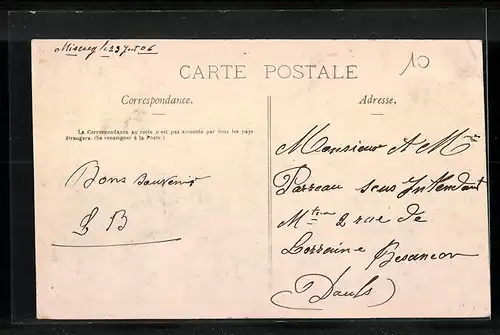 Miserey le 23 7bre 06
10
CARTE POSTALE
Correspondance.
La Correspondance au recto n'est pas acceptée par tous les pays
étrangers. (Se renseigner à la Poste.)
Bons souvenirs
L B
Adresse.
Monsieur et Mme
Parreau sous Intendant
Mre 2 rue de
Lorraine Besancon
(Doubs)